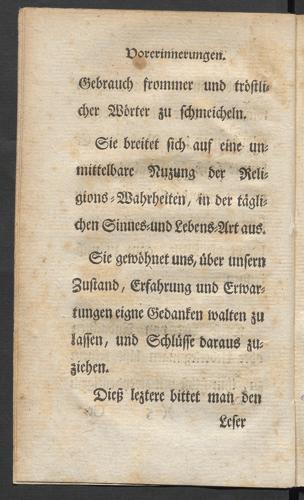 Vorerinnerungen.
Gebrauch frommer und tröstli-
cher Wörter zu schmeicheln.
Sie breitet sich auf eine un-
mittelbare Nuzung der Reli-
gions-Wahrheiten, in der tägli-
chen Sinnes-und Lebens-Art aus.
Sie gewöhnet uns, über unsern
Zustand, Erfahrung und Erwar-
tungen eigne Gedanken walten zu
lassen, und Schlüsse daraus zu-
ziehen.
Dieß leztere bittet man den
Leser